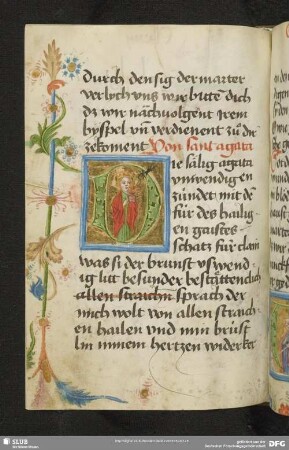 durch den sig der marter
verlych vns wir bitte dich
dz wir nachuolgent irem
byspel vn̄ verdienent zu dir
zekoment Von sant agata
Die sälig agata
ynwendig en
zündet mit de
für des hailig
en gaistes
schatz für clain
was si der brunst vswend
ig litt besunder bestättenclich
allen straichn sprach der
mich wolt von allen straich
en hailen vnd min brust
in minem hertzen widerker
SLUB